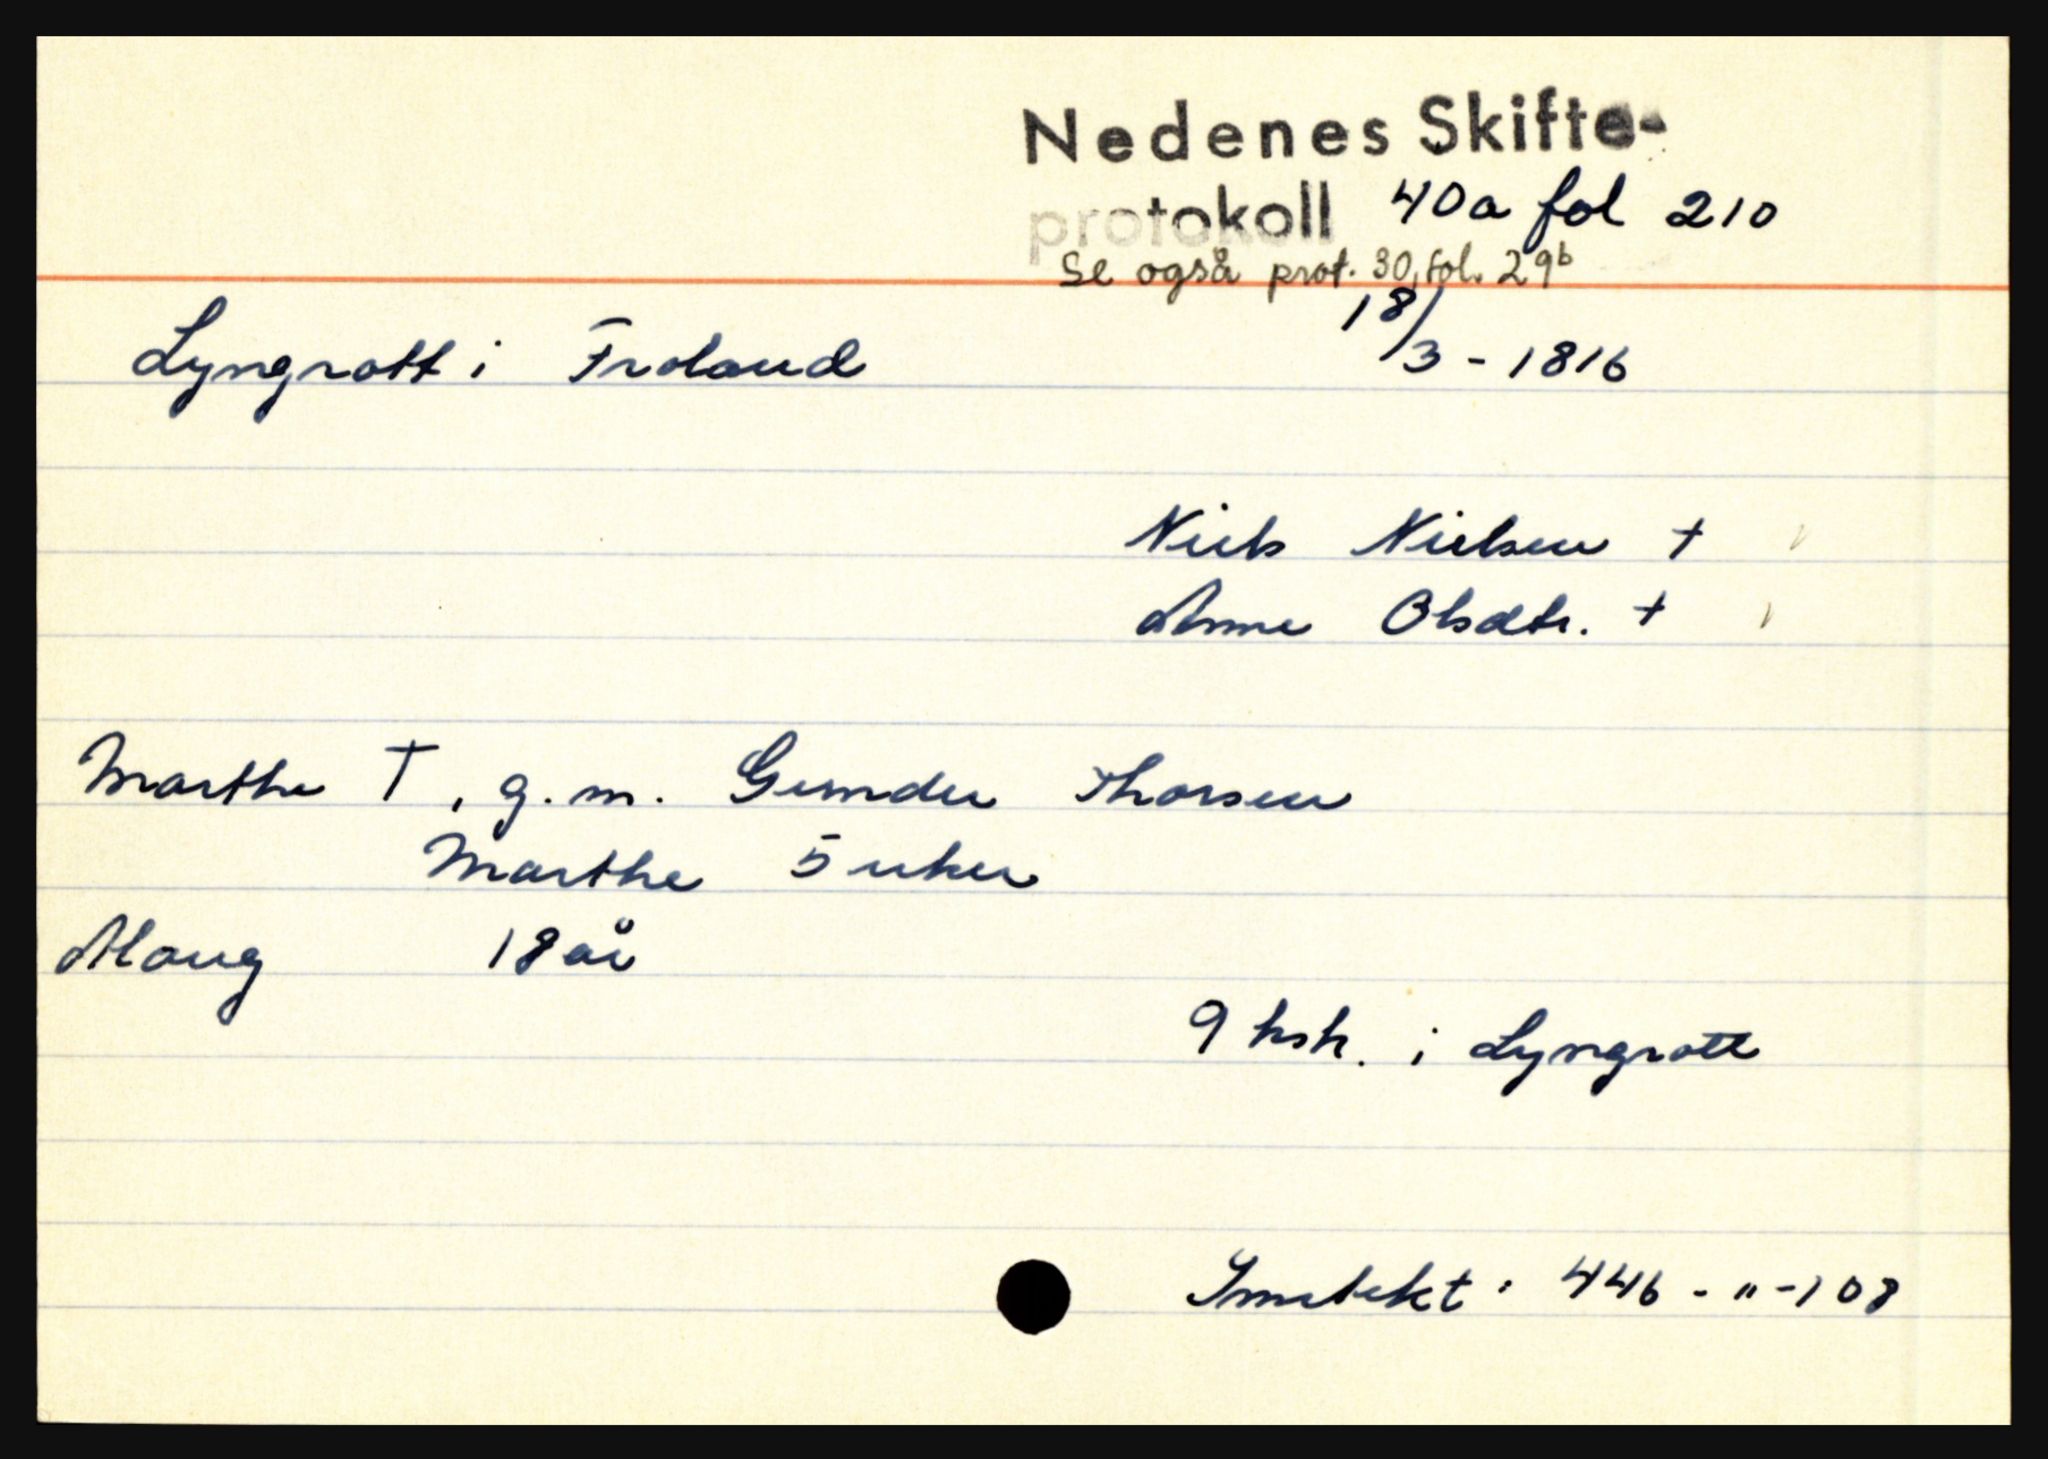 Nedenes Skifte-
protokoll 40a fol 210
Se også prot. 30, fol. 29b
Lyngrott i Froland 18/3 - 1816
Niels Nielsen +
Anne Olsdtr. +
Marthe †, g.m. Gunder Thorsen
Marthe 5 uker
Aloug 18 år
9 ksk. i Lyngrott
Inntekt: 446 - " - 108